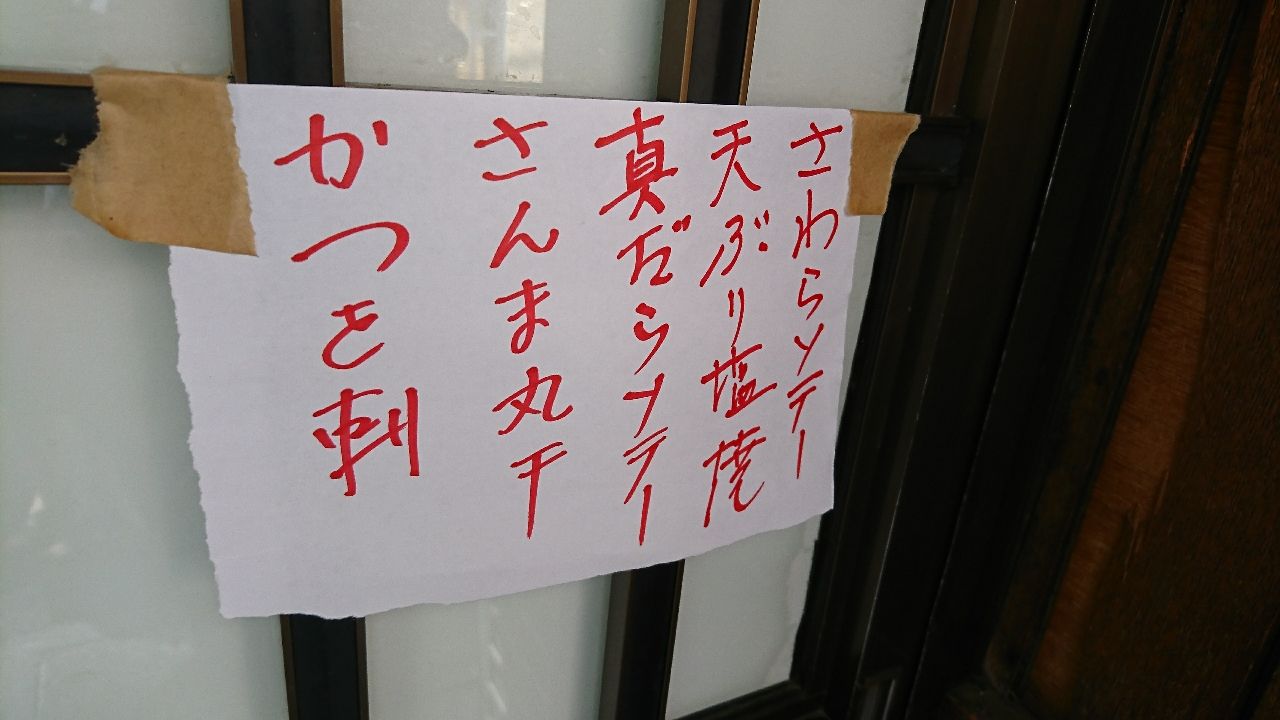 さわらソテー
天ぶり塩焼
真だらソテー
さんま丸干
かつを刺